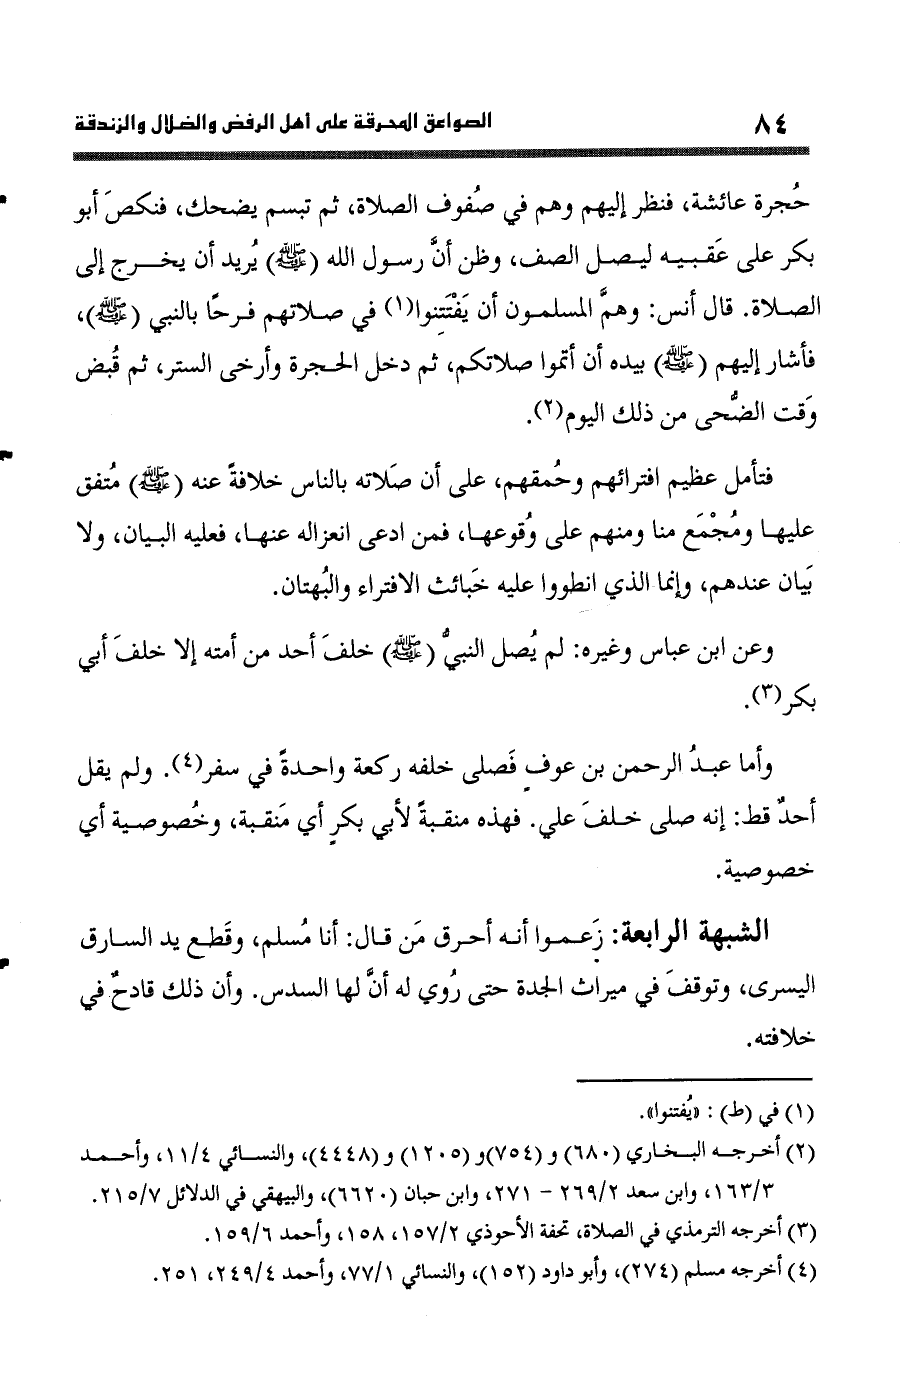 ٨٤
الصواعق المحرقة على أهل الرفض والضلال والزندقة
حُجرة عائشة، فنظر إليهم وهم في صُفوف الصلاة، ثم تبسم يضحك، فنكصَ أبو
بكر على عَقبيه ليصل الصف، وظن أنَّ رسول الله (ﷺ) يُريد أن يخرج إلى
الصلاة. قال أنس: وهمَّ المسلمون أن يَفْتَتِنوا(١) في صلاتهم فرحًا بالنبي (ﷺ)،
فأشار إليهم (ﷺ) بيده أن أتموا صلاتكم، ثم دخل الحجرة وأرخى الستر، ثم قُبض
وَقت الضُّحى من ذلك اليوم(٢).
فتأمل عظيم افترائهم وحُمقهم، على أن صَلاته بالناس خلافةً عنه (ﷺ) مُتفق
عليها ومُجْمَع منا ومنهم على وُقوعها، فمن ادعى انعزاله عنها، فعليه البيان، ولا
بَيان عندهم، وإنما الذي انطووا عليه خَبائث الافتراء والبُهتان.
وعن ابن عباس وغيره: لم يُصل النبيُّ (ﷺ) خلفَ أحد من أمته إلا خلفَ أبي
بكر(٣).
وأما عبدُ الرحمن بن عوفٍ فَصلى خلفه ركعة واحدةً في سفر(٤). ولم يقل
أحدٌ قط: إنه صلى خلفَ علي. فهذه منقبةً لأبي بكرٍ أي مَنقبة، وخُصوصية أي
خصوصية.
الشبهة الرابعة: زَعموا أنه أحرق مَن قال: أنا مُسلم، وقَطع يد السارق
اليسرى، وتوقفَ في ميراث الجدة حتى رُوي له أنَّ لها السدس. وأن ذلك قادحٌ في
خلافته.
(١) في (ط) : «يُفتنوا».
(٢) أخرجه البخاري (٦٨٠) و (٧٥٤)و (١٢٠٥) و (٤٤٤٨)، والنسائي ١١/٤، وأحمد
١٦٣/٣، وابن سعد ٢٦٩/٢ - ٢٧١، وابن حبان (٦٦٢٠)، والبيهقي في الدلائل ٢١٥/٧.
(٣) أخرجه الترمذي في الصلاة، تحفة الأحوذي ١٥٧/٢، ١٥٨، وأحمد ١٥٩/٦.
(٤) أخرجه مسلم (٢٧٤)، وأبو داود (١٥٢)، والنسائي ٧٧/١، وأحمد ٢٤٩/٤، ٢٥١.